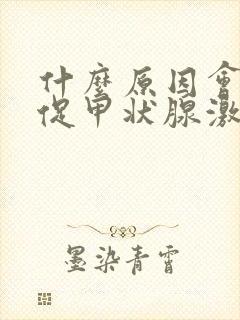 什麼原因會
促甲状腺激
墨染青霄